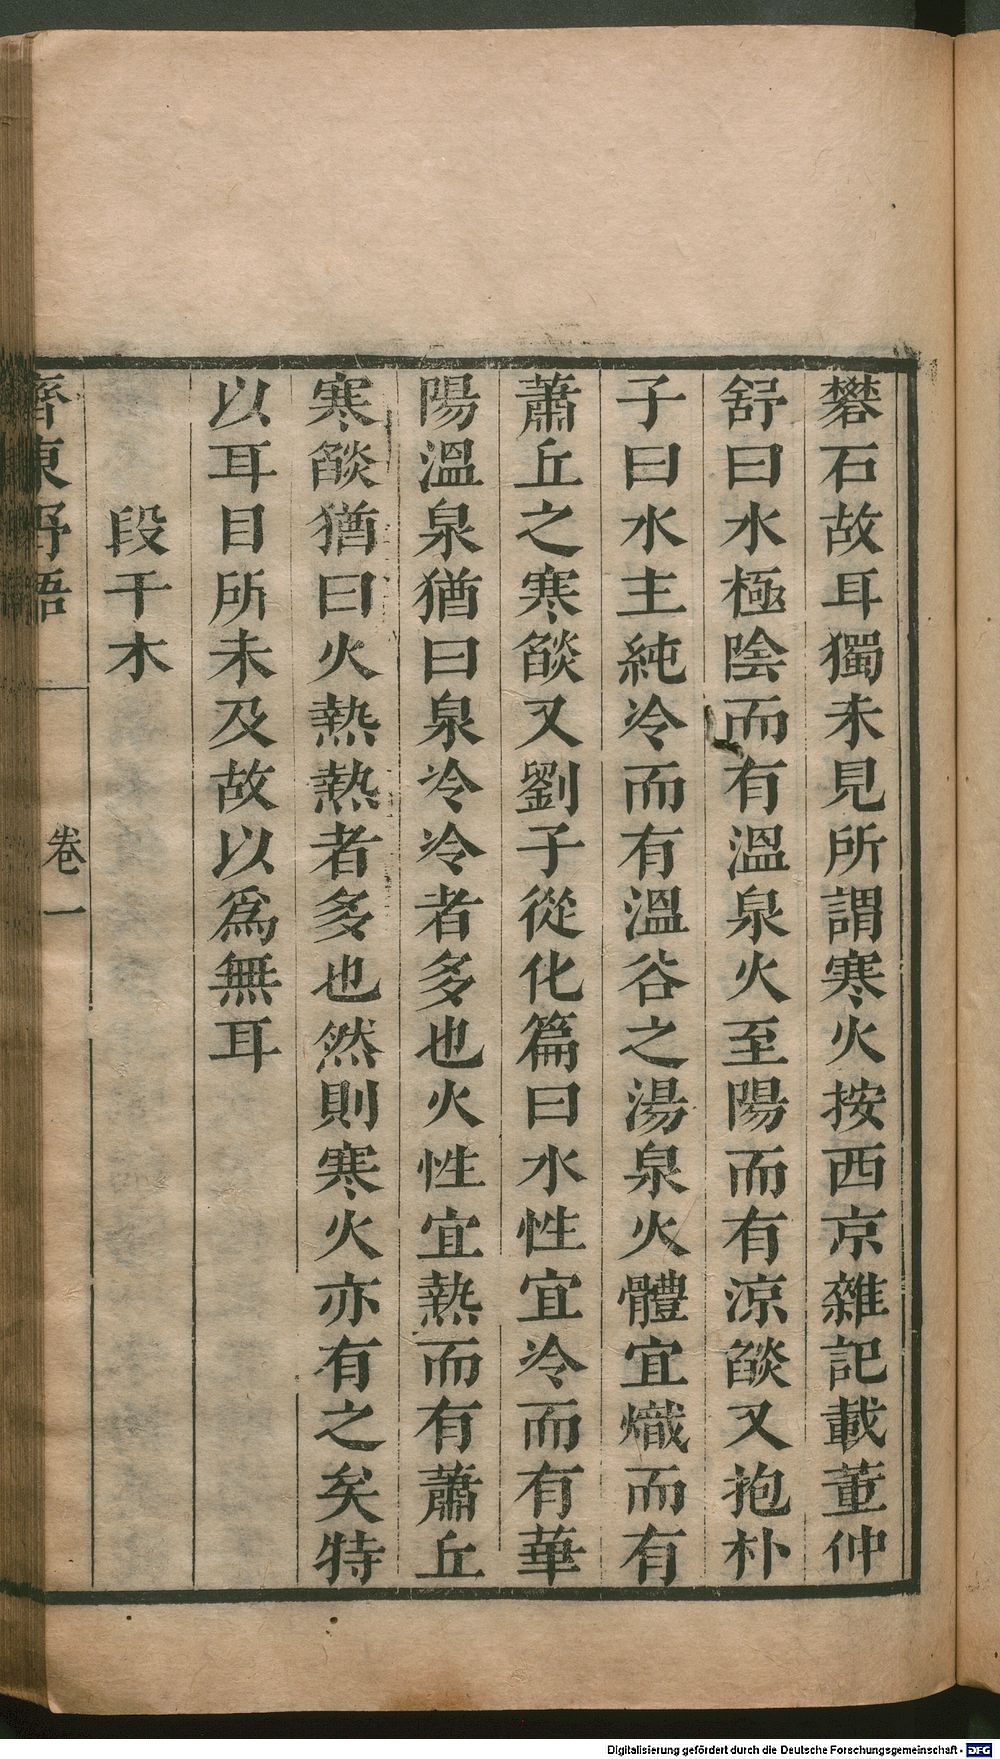 礬石故耳獨未見所謂寒火按西京雜記載董仲
舒曰水極陰而有溫泉火至陽而有涼燄又抱朴
子曰水主純冷而有溫谷之湯泉火體宜熾而有
蕭丘之寒燄又劉子從化篇曰水性宜冷而有華
陽溫泉猶曰泉冷冷者多也火性宜熱而有蕭丘
寒燄猶曰火熱熱者多也然則寒火亦有之矣特
以耳目所未及故以爲無耳
段干木
齊東野語
卷一
Digitalisierung gefördert durch die Deutsche Forschungsgemeinschaft - DFG